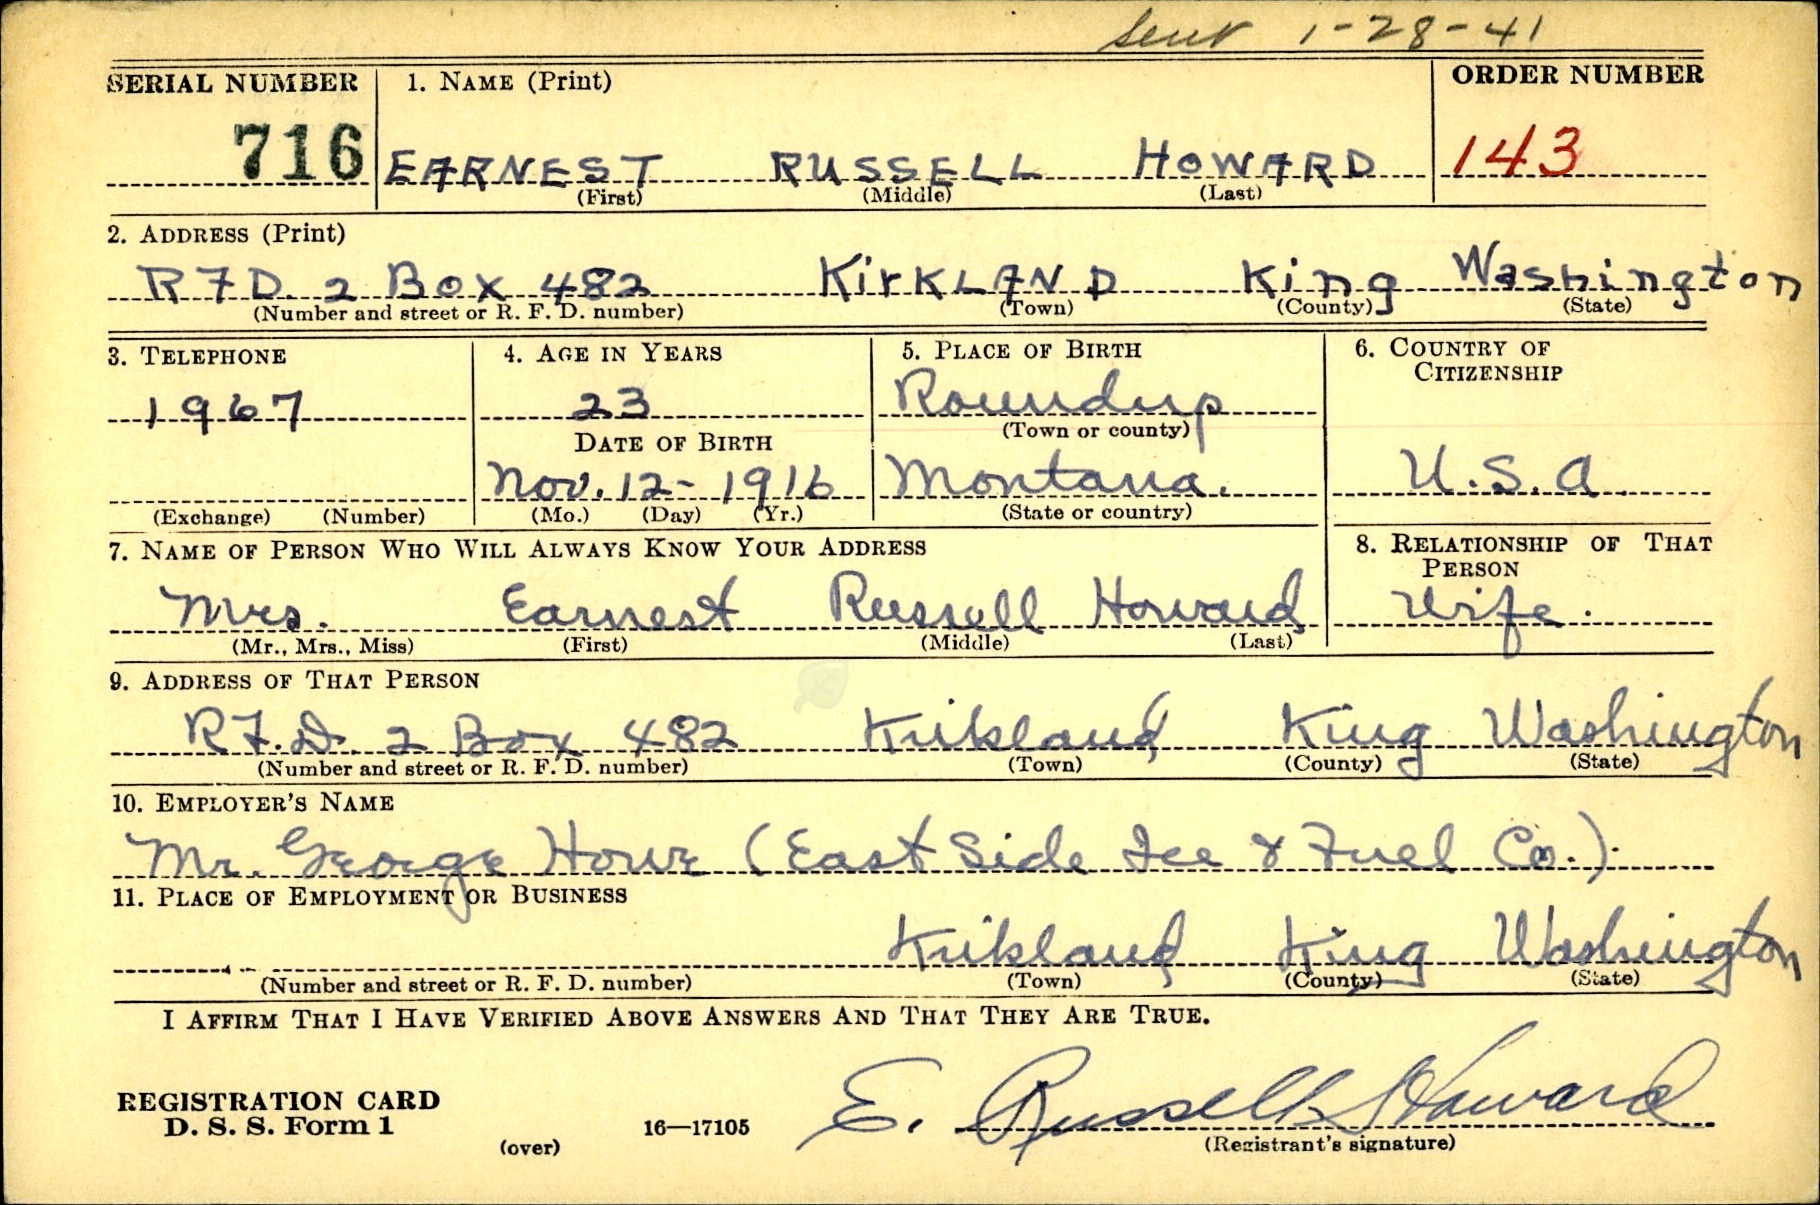 Sent 1-28-41
SERIAL NUMBER 1. NAME (Print) ORDER NUMBER
716 EARNEST RUSSELL HOWARD 143
(First) (Middle) (Last)
2. ADDRESS (Print)
R F D. 2 Box 482 KirKLAND King Washington
(Number and street or R. F. D. number) (Town) (County) (State)
3. TELEPHONE 4. AGE IN YEARS 5. PLACE OF BIRTH 6. COUNTRY OF
CITIZENSHIP
1967 23 Roundup
DATE OF BIRTH (Town or county)
Nov. 12- 1916 Montana. U.S.A.
(Exchange) (Number) (Mo.) (Day) (Yr.) (State or country)
7. NAME OF PERSON WHO WILL ALWAYS KNOW YOUR ADDRESS 8. RELATIONSHIP OF THAT
PERSON
Mrs. Earnest Russell Howard Wife.
(Mr., Mrs., Miss) (First) (Middle) (Last)
9. ADDRESS OF THAT PERSON
R.F.D. 2 Box 482 Kirkland King Washington
(Number and street or R. F. D. number) (Town) (County) (State)
10. EMPLOYER'S NAME
Mr. George Howe (East Side Ice & Fuel Co.).
11. PLACE OF EMPLOYMENT OR BUSINESS
Kirkland King Washington
(Number and street or R. F. D. number) (Town) (County) (State)
I AFFIRM THAT I HAVE VERIFIED ABOVE ANSWERS AND THAT THEY ARE TRUE.
REGISTRATION CARD
D. S. S. Form 1 E. Russell Howard
(over) 16—17105 (Registrant's signature)